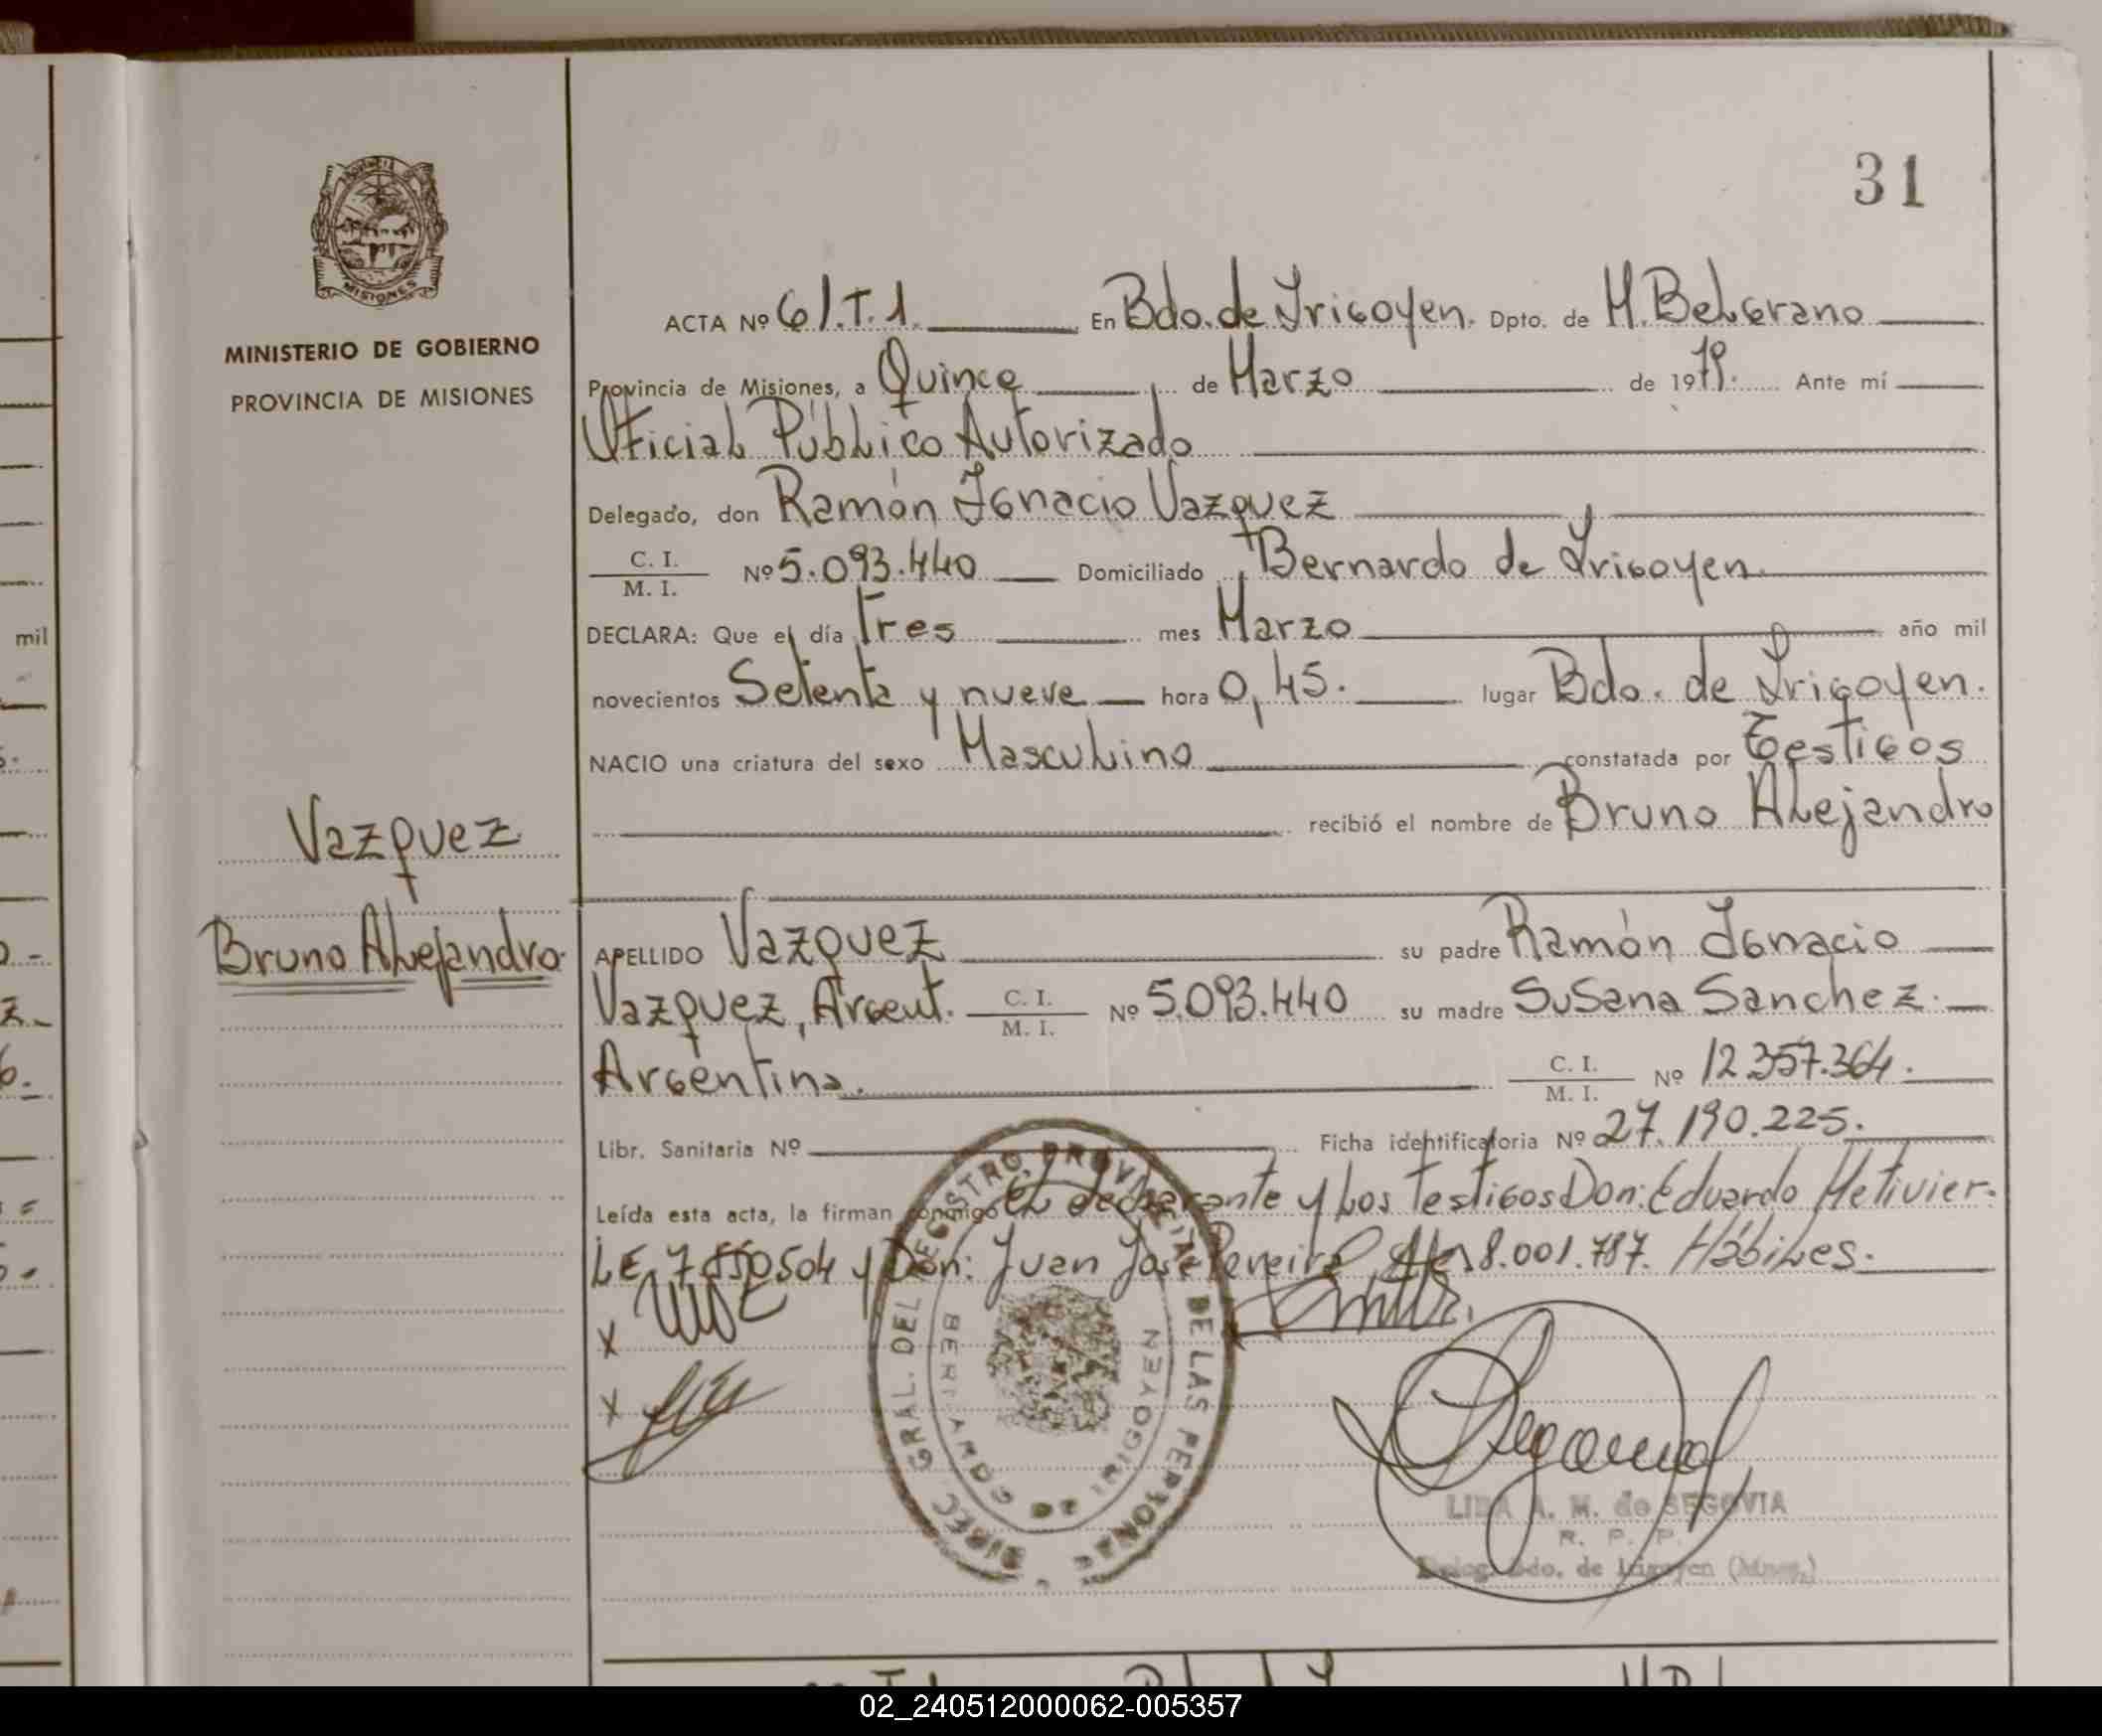 31
MISIONES
MINISTERIO DE GOBIERNO
PROVINCIA DE MISIONES
Vazquez
Bruno Alejandro
ACTA Nº 61.T.1. En Bdo. de Irigoyen. Dpto. de M. Belgrano
Provincia de Misiones, a Quince de Marzo de 1979. Ante mí
Oficial Público Autorizado
Delegado, don Ramón Ignacio Vazquez
C. I.
M. I. Nº 5.093.440 Domiciliado Bernardo de Irigoyen.
DECLARA: Que el día Tres mes Marzo año mil
novecientos Setenta y nueve hora 0,45. lugar Bdo. de Irigoyen.
NACIO una criatura del sexo Masculino constatada por Testigos
recibió el nombre de Bruno Alejandro
APELLIDO Vazquez su padre Ramón Ignacio
Vazquez, Argent. C. I. M. I. Nº 5.093.440 su madre Susana Sanchez.
Argentina. C. I. M. I. Nº 12.357.364.
Libr. Sanitaria Nº Ficha identificatoria Nº 27.190.225.
Leída esta acta, la firman conmigo el declarante y los Testigos Don: Eduardo Metivier.
LE. 7.550504 y Don: Juan José Pereira 8.001.787. Hábiles.
x
x
DIREC. GRAL. DEL REGISTRO PROVINCIAL DE LAS PERSONAS
BERNARDO DE IRIGOYEN
LIDA A. M. de SEGOVIA
R. P. P.
Deleg. Bdo. de Irigoyen (Mnes.)
mil
02_240512000062-005357